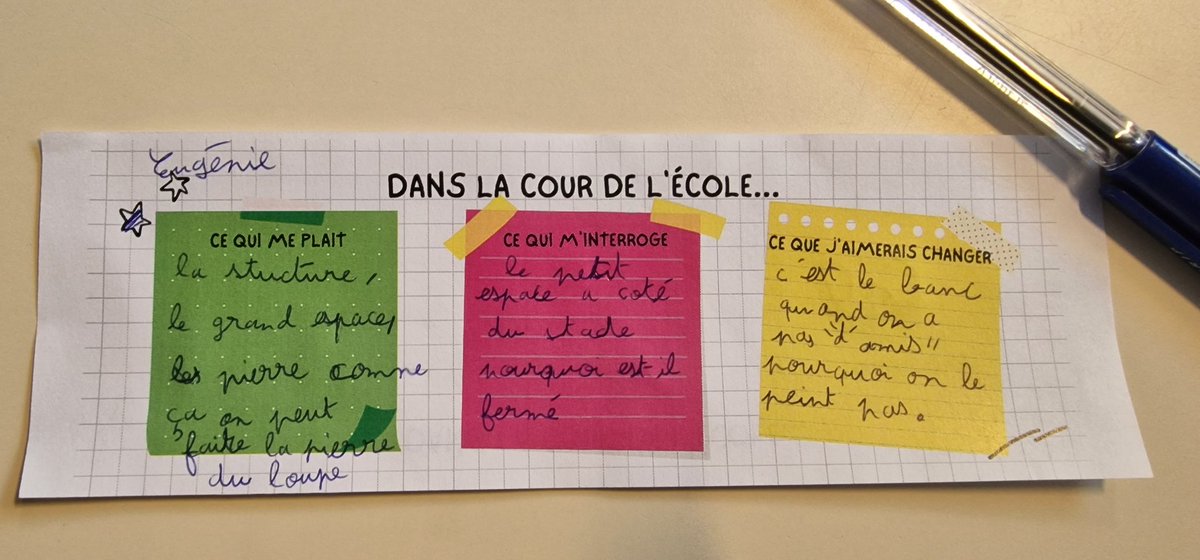 Eugénie
DANS LA COUR DE L'ÉCOLE...
CE QUI ME PLAIT
la stucture,
le grand espace,
les pierre comme
ça on peut
faite la pierre
du loupe
CE QUI M'INTERROGE
le petit
espace a coté
du stade
pourquoi est-il
fermé
CE QUE J'AIMERAIS CHANGER
c'est le banc
quand on a
pas "d'amis"
pourquoi on le
peint pas.